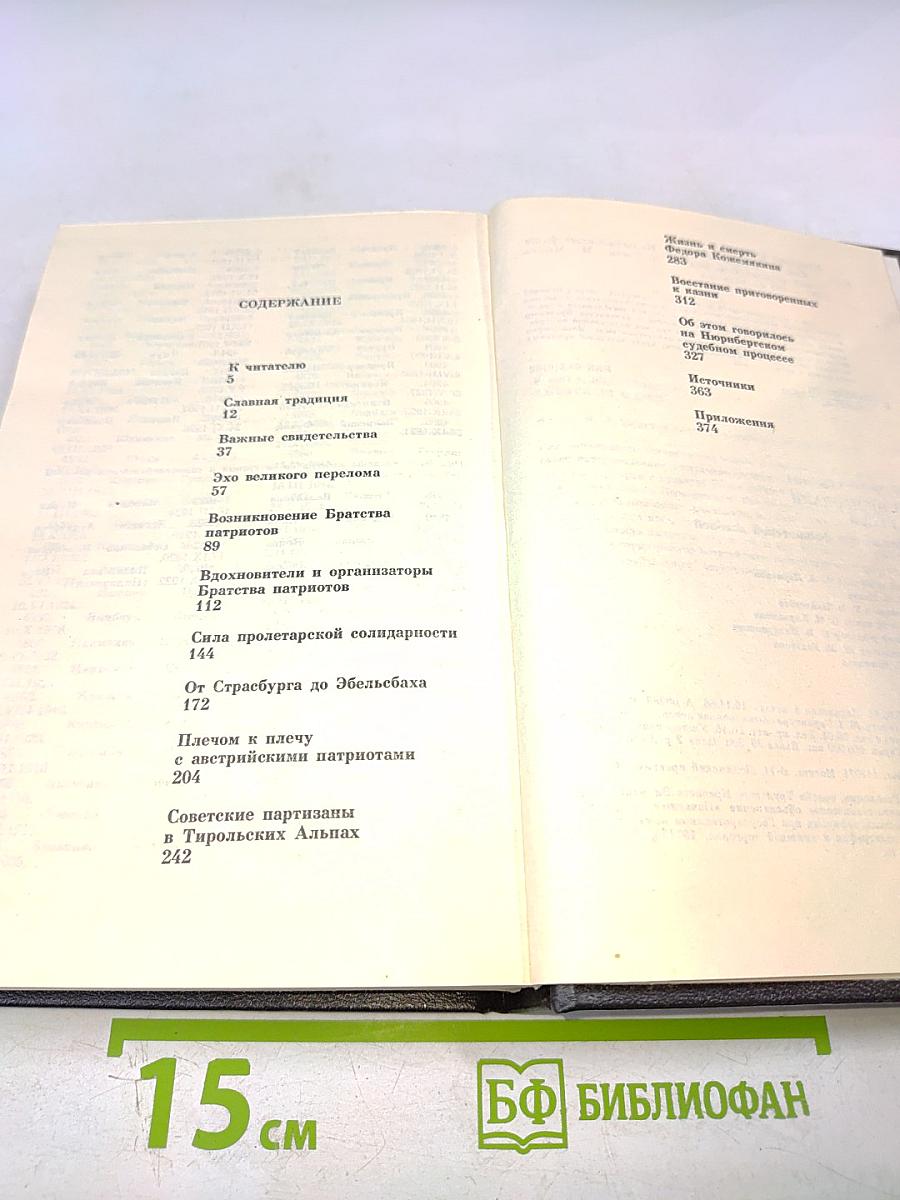 СОДЕРЖАНИЕ
К читателю
5
Славная традиция
12
Важные свидетельства
37
Эхо великого перелома
57
Возникновение Братства
патриотов
89
Вдохновители и организаторы
Братства патриотов
112
Сила пролетарской солидарности
144
От Страсбурга до Эбельсбаха
172
Плечом к плечу
с австрийскими патриотами
204
Советские партизаны
в Тирольских Альпах
242
Жизнь и смерть
Федора Кожемякина
283
Восстание приговоренных
к казни
312
Об этом говорилось
на Нюрнбергском
судебном процессе
327
Источники
363
Приложения
374
15 см
БФ БИБЛИОФАН